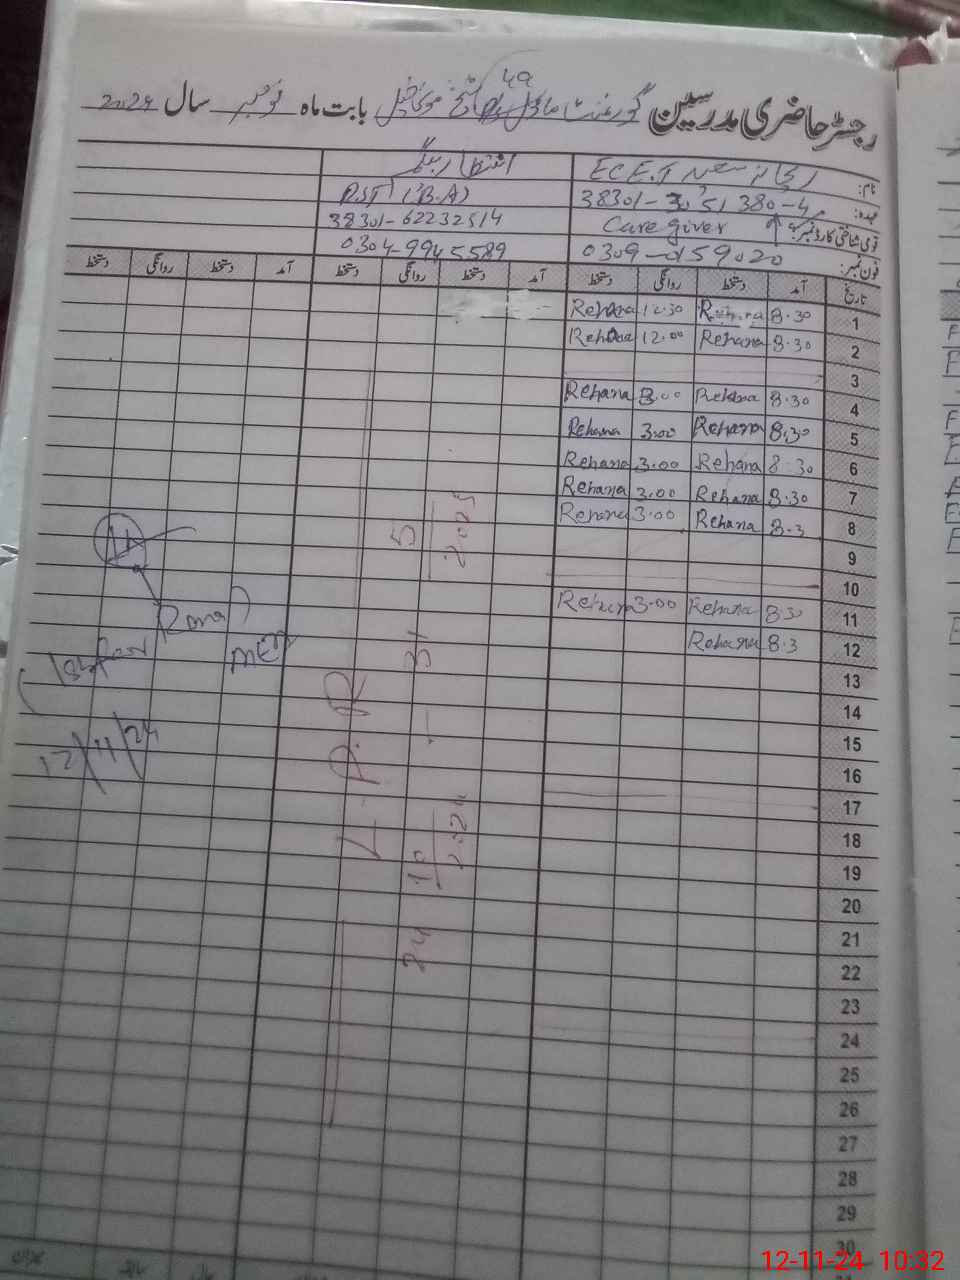 رجسٹر حاضری مدرسین گورنمنٹ ماڈل بابت ماہ نومبر سال 2024
49
نام: ریحانہ سعید E.C.E.T
انتظار بیگم
عہدہ: 38301-3051380-4
P.S.T (B.A)
قومی شناختی کارڈ نمبر: Care giver
38301-62232514
فون نمبر: 0309-0159020
0304-9945589
تاریخ آمد دستخط روانگی دستخط آمد دستخط روانگی دستخط آمد دستخط روانگی دستخط
1 8.30 Rehana 12.30 Rehana
2 8.30 Rehana 12.00 Rehana
3
4 8.30 Rehana 3.00 Rehana
5 8.30 Rehana 3.00 Rehana
6 8.30 Rehana 3.00 Rehana
7 8.30 Rehana 3.00 Rehana
8 8.3 Rehana 3.00 Rehana
9
10
11 8.30 Rehana 3.00 Rehana
12 8.3 Rehana
13
14
15
16
17
18
19
20
21
22
23
24
25
26
27
28
29
30
L.P.R
24 10 2024 - 31 5 2025
MEA
12/11/24
12-11-24 10:32